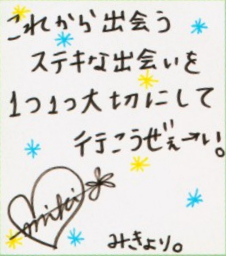 これから出会う
ステキな出会いを
1つ1つ大切にして
行こうぜぇーい。
miki
みきより。